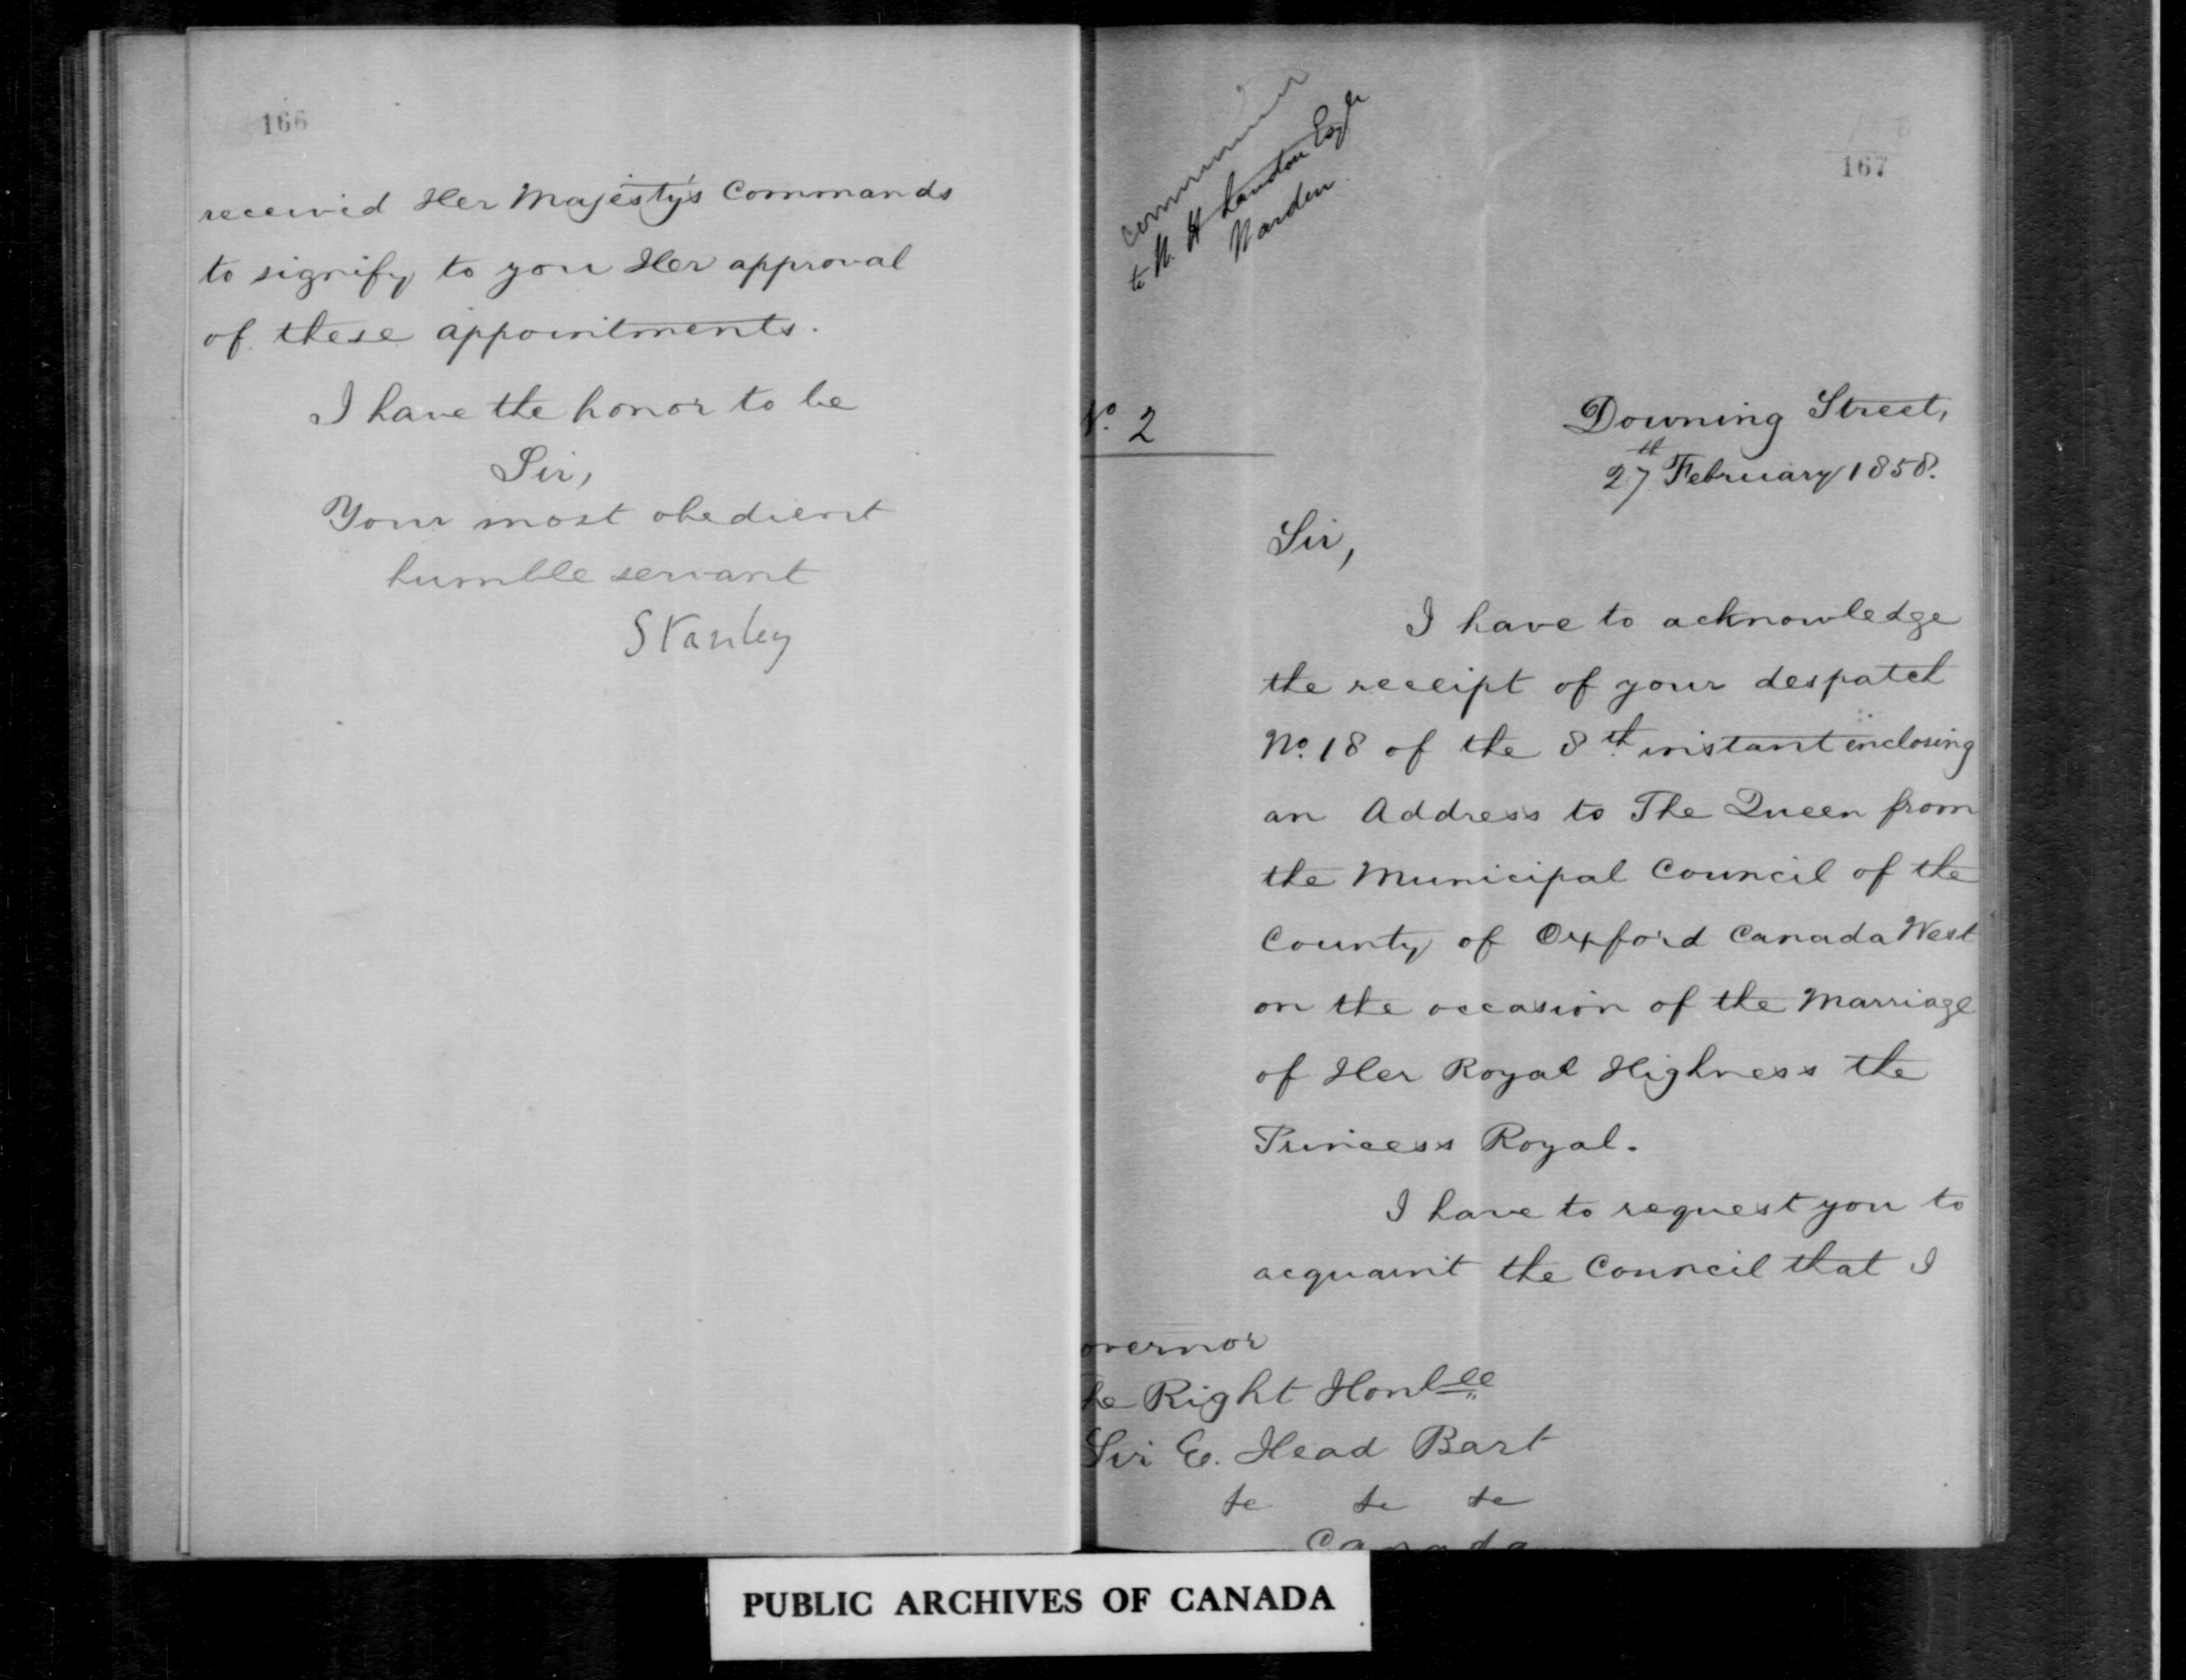 166
received Her Majesty's Commands
to signify to you Her approval
of these appointments.
I have the honor to be
Sir,
Your most obedient
humble servant
Stanley
to W. H Landon Esqre
Warden.
167
No. 2
Downing Street,
27th February 1858.
Sir,
I have to acknowledge
the receipt of your despatch
No. 18 of the 8th instant enclosing
an Address to The Queen from
the Municipal Council of the
County of Oxford Canada West
on the occasion of the Marriage
of Her Royal Highness the
Princess Royal.
I have to request you to
acquaint the Council that I
overnor
he Right Honble
Sir E. Head Bart
&c &c &c
Canada
PUBLIC ARCHIVES OF CANADA